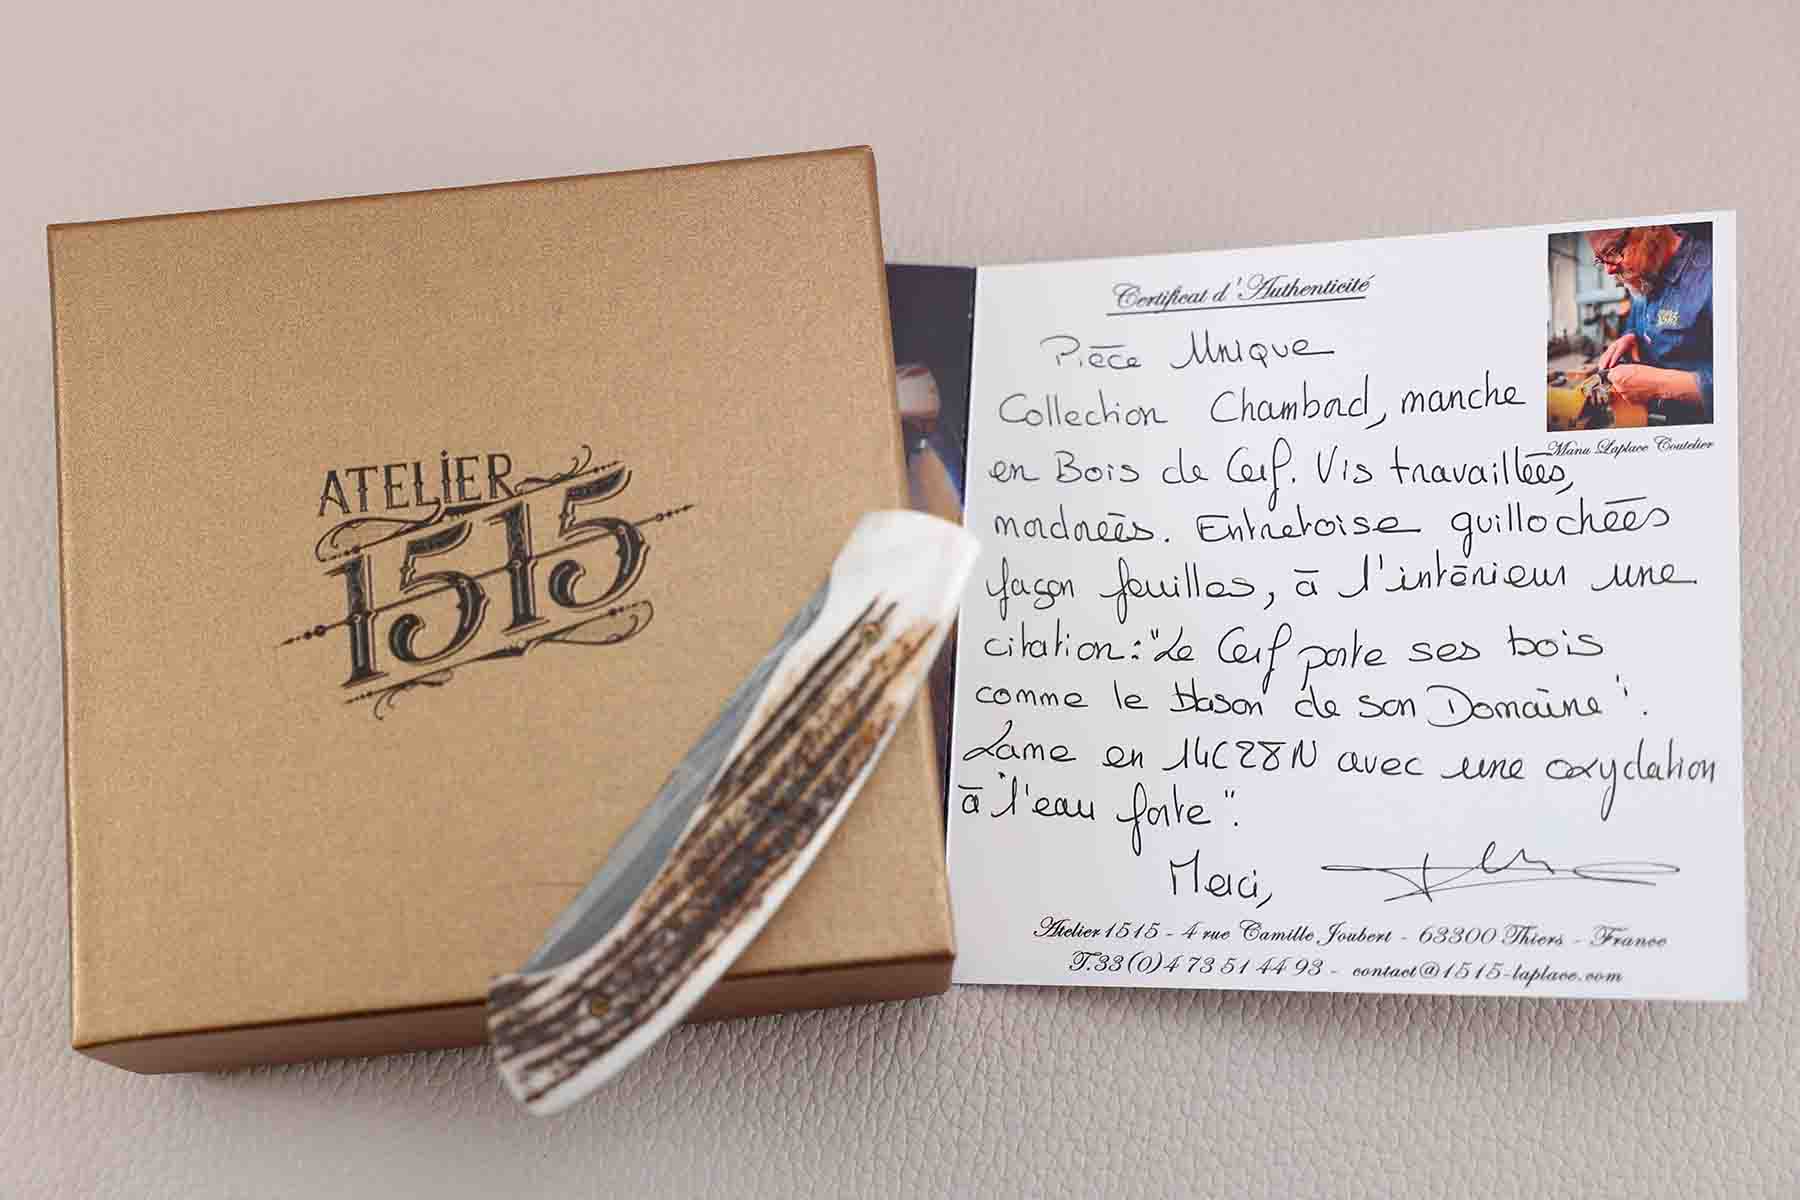 ATELIER
1515
Certificat d'Authenticité
Pièce Unique
Collection Chambord, manche
Manu Laplace Coutelier
en Bois de Cerf. Vis travaillées,
mordorées. Entretoise guillochées
façon feuilles, à l'intérieur une
citation: "Le Cerf porte ses bois
comme le blason de son Domaine".
Lame en 14C28N avec une oxydation
à l'eau forte".
Merci,
Atelier 1515 - 4 rue Camille Joubert - 63300 Thiers - France
T.33(0)4 73 51 44 93 - contact@1515-laplace.com